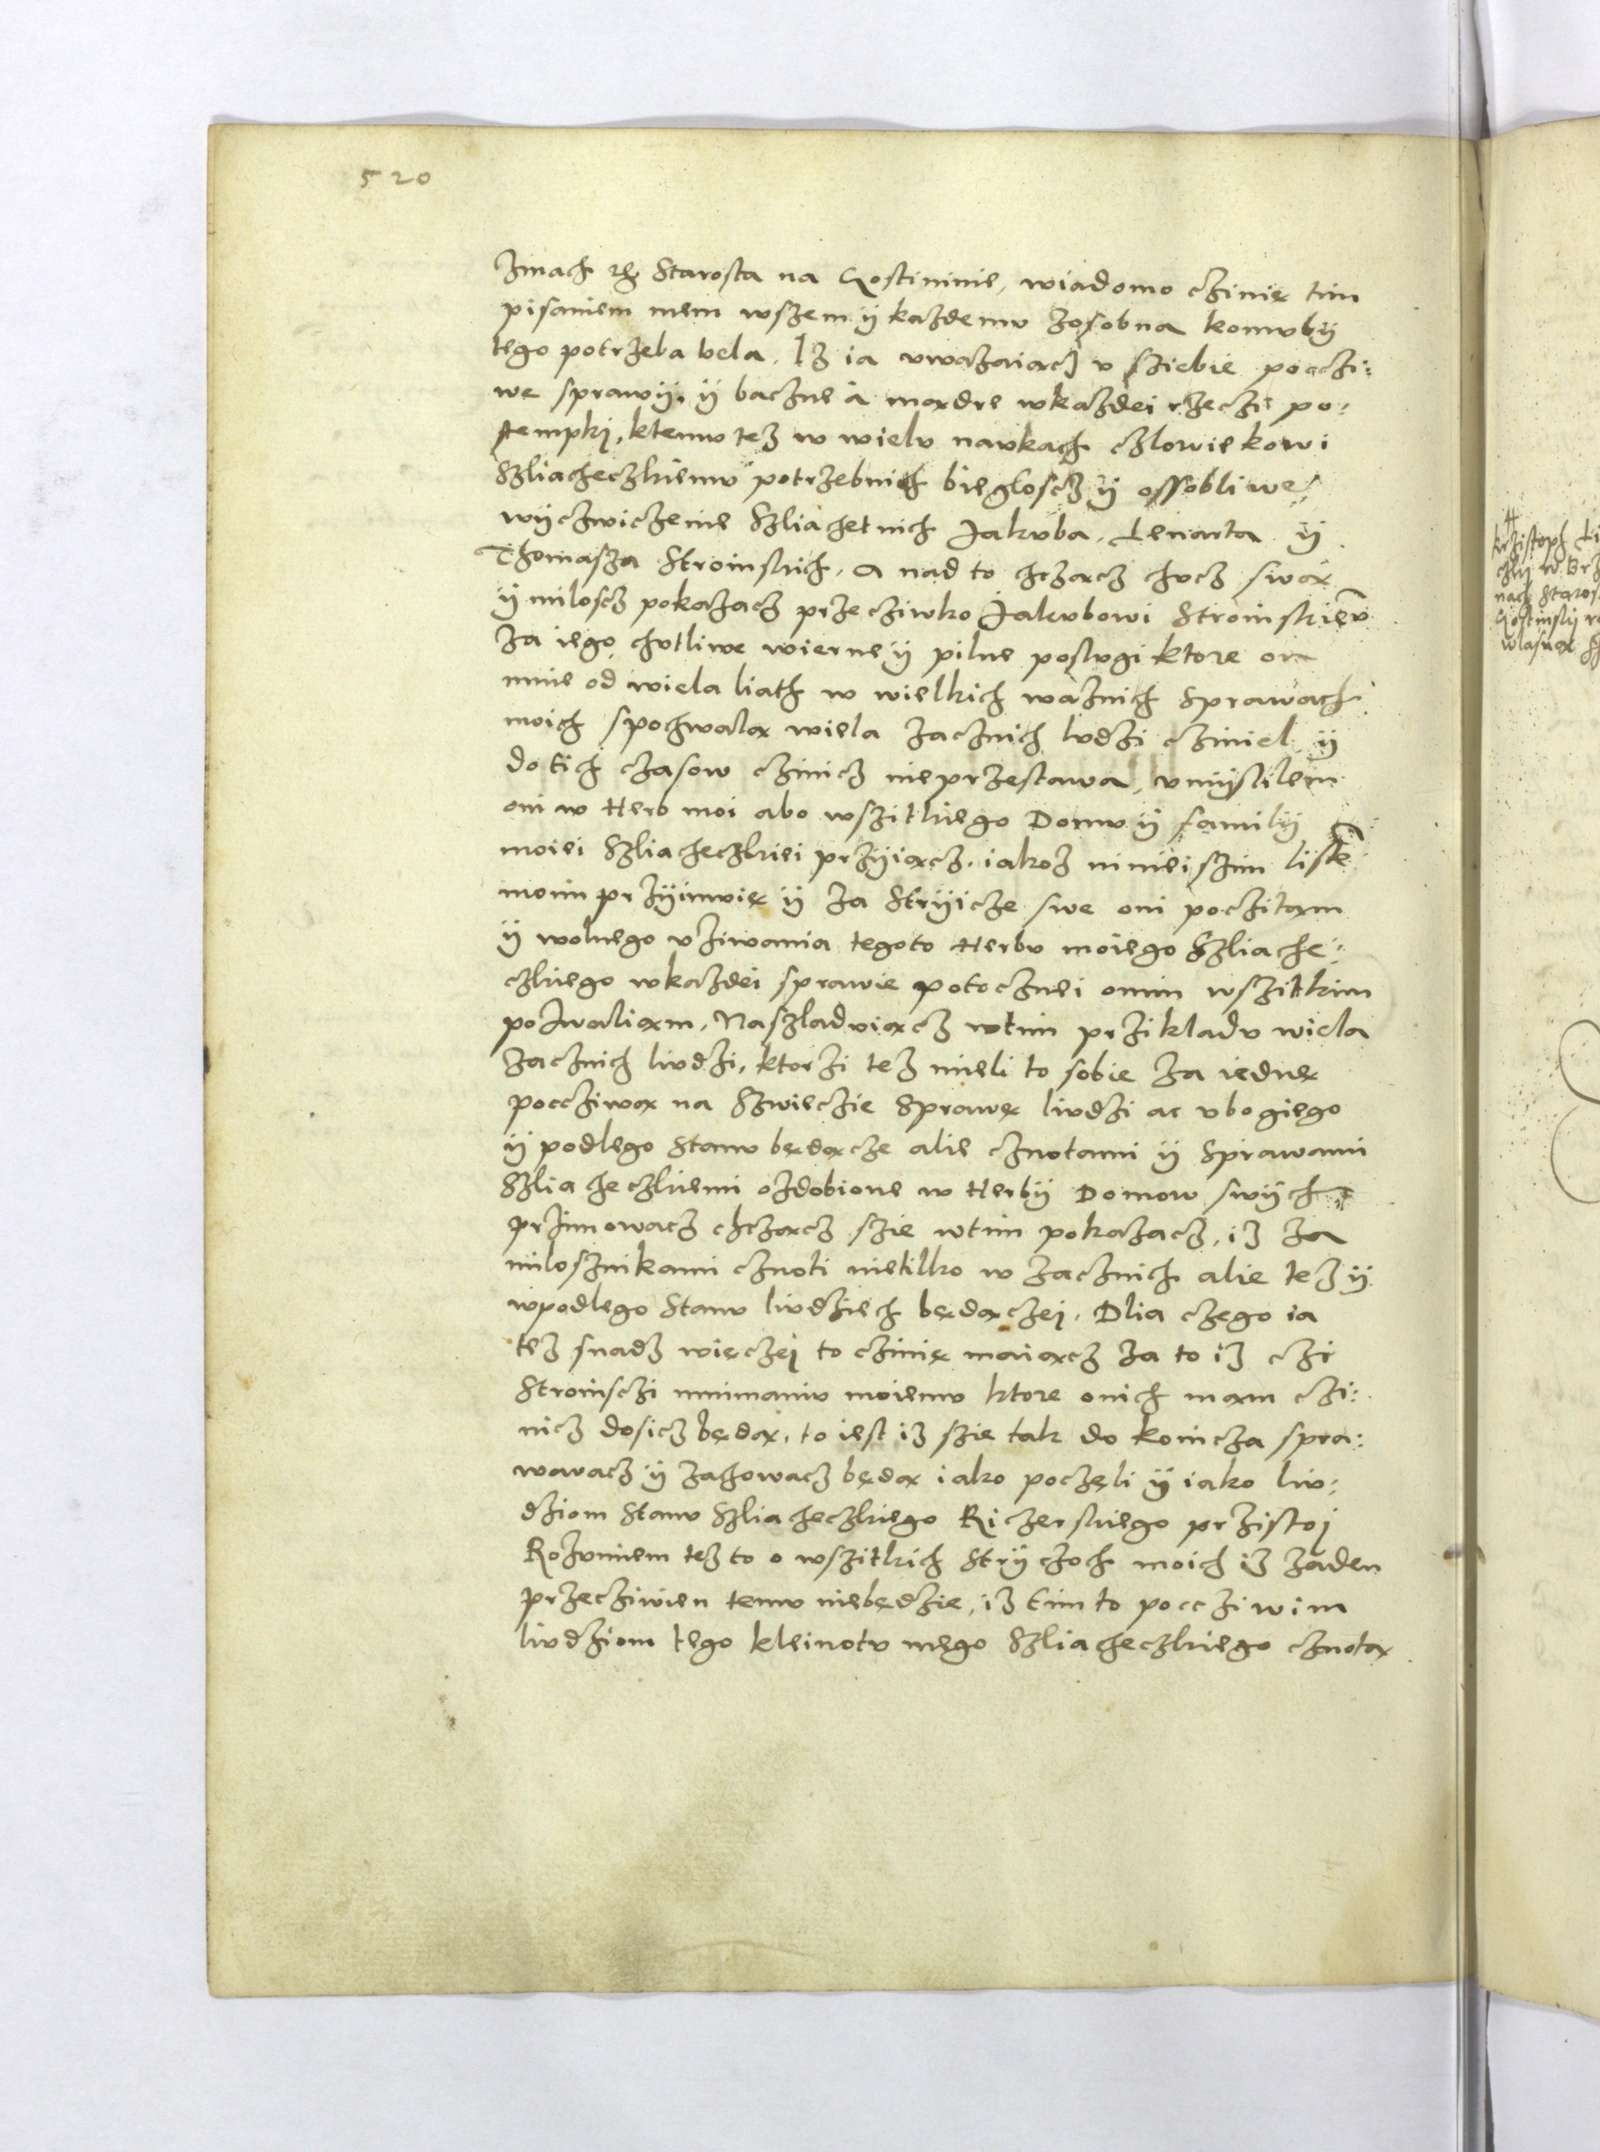 520
Zinach Starosta na Gostininie, wiadomo czinię tim
pisaniem mem wszem ÿ każdemv zosobna komvbÿ
tego potrzeba bela. Iż ia vważaiącz v sziebie poczci:
we sprawÿ, ÿ baczne a mądre wkażdei rzeczi po:
stempkj, ktemv też w wielv navkach człowiekowi
Szliacheczkiemv potrzebnich biegloscz ÿ ossobliwe
wÿczwiczenie Szliachetnich Jakvba, Lenarta ÿ
Thomasza Stroinskich, a nad to chcząącz chvcz swą
ÿ miloscz pokazacz przecziwko Jakvbowi Stroinskiemv
za iego chvtliwe wierne ÿ pilne poslvgi ktore on
mnie od wiela liath w wielkich ważnich sprawach
moich spochwalą wiela zacznich lvdzi cziniel ÿ
do tich czasow czinicz nieprzestawa, vmÿslilem
oni w Herb moi abo wszitkiego Domv ÿ familÿ
moiei Szliacheczkiei przÿiącz, iakoż ninieiszim listem
moim przÿimvię ÿ za Strÿicze swe oni poczitam
ÿ wolnego vżiwania tegoto Herbv moiego Szliache:
czkiego wkażdei sprawie potocznei onim wszitkim
pozwaliam, Naszladviącz wtim przikladv wiela
zacznich livdzi, ktorzi też mieli to sobie za iednę
pocczivą na Szwieczie Sprawę livdzi ac vbogiego
ÿ podlego Stanv będącze alie cznotami ÿ Sprawami
Szliacheczkiemi ozdobione w Herbÿ Domow swÿch
przimowacz chcząącz szie wtim pokazacz, iż za
milosznikami cznoti nietilko w zacznich alie też ÿ
wpodlego Stanv livdziech będączej. Dlia czego ia
też snadz więczej to czinię maiącz za to iż czi
Stroinsczi mnimaniv moiemv ktore onich mam czi:
nicz dosicz będą, to iest iż szie tak do koncza spra:
wavacz ÿ zachowacz będą iako poczęli ÿ iako liv:
dziom Stanv Szliacheczkiego Riczerskiego przistoj
Rozvmiem też to o wszitkich Strÿczoch moich iż żaden
przecziwien temv niebędzie, iż timto pocczivim
livdziom tego kleinotv mego Szliacheczkiego cznotą
Starost
Gostinskÿ